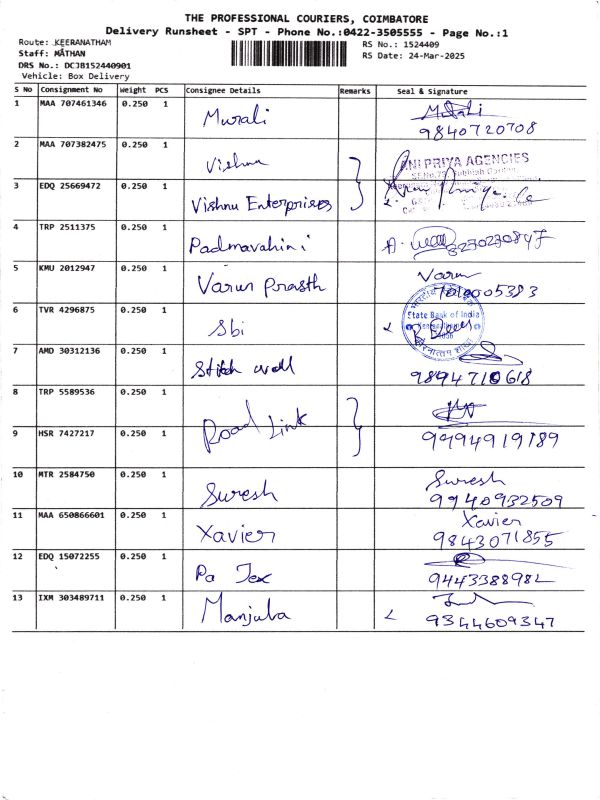 THE PROFESSIONAL COURIERS, COIMBATORE
Delivery Runsheet - SPT - Phone No.:0422-3505555 - Page No.:1
Route: KEERANATHAM
RS No.: 1524409
Staff: MATHAN
RS Date: 24-Mar-2025
DRS No.: DCJB152440901
Vehicle: Box Delivery
S No Consignment No Weight PCS Consignee Details Remarks Seal & Signature
1 MAA 707461346 0.250 1 Murali
9840720708
2 MAA 707382475 0.250 1 Vishnu
ANI PRIYA AGENCIES
3 EDQ 25669472 0.250 1 Vishnu Enterprises
4 TRP 2511375 0.250 1 Padmavahini
5 KMU 2012947 0.250 1 Varun Prasth Varun
6 TVR 4296875 0.250 1 Sbi
State Bank of India
7 AMD 30312136 0.250 1 Stitch well
9894710618
8 TRP 5589536 0.250 1 Road Link
9 HSR 7427217 0.250 1
10 MTR 2584750 0.250 1 Suresh Suresh
9940932509
11 MAA 650866601 0.250 1 Xavier Xavier
9843071855
12 EDQ 15072255 0.250 1 Pa Tex
13 IXM 303489711 0.250 1 Manjula
9344609347